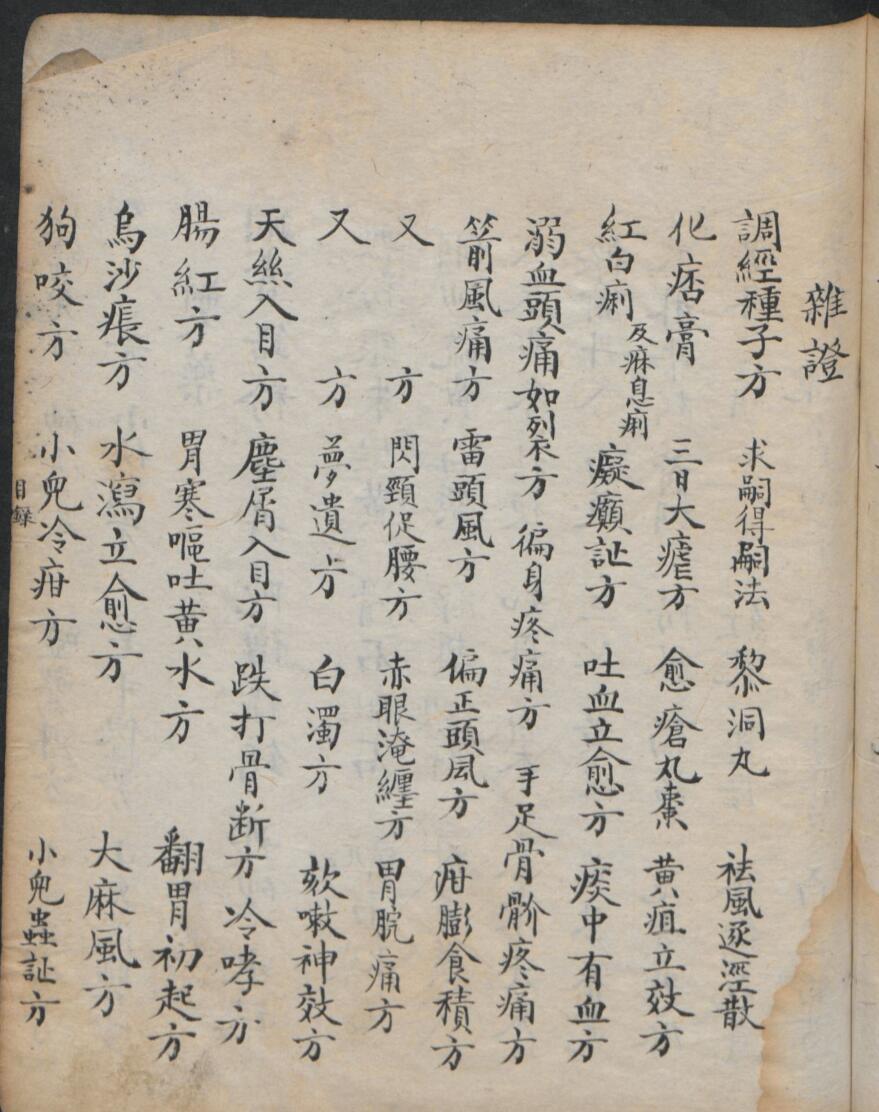 雜證
調經種子方 求嗣得嗣法 黎洞丸 祛風逐溼散
化痞膏 三日大瘧方 愈瘡丸棗 黃疸立效方
紅白痢及痳息痢 癡癲証方 吐血立愈方 痰中有血方
溺血頭痛如裂不方 徧身疼痛方 手足骨骱疼痛方
箭風痛方 雷頭風方 偏正頭风方 疳膨食積方
又 方 閃頸促腰方 赤眼淹纏方 胃脘痛方
又 方 夢遺方 白濁方 欬嗽神效方
天絲入目方 塵屑入目方 跌打骨断方 冷哮方
腸紅方 胃寒嘔吐黃水方 翻胃初起方
烏沙痕方 水瀉立愈方 大麻風方
狗咬方 小兒冷疳方 小兒蟲証方
目録